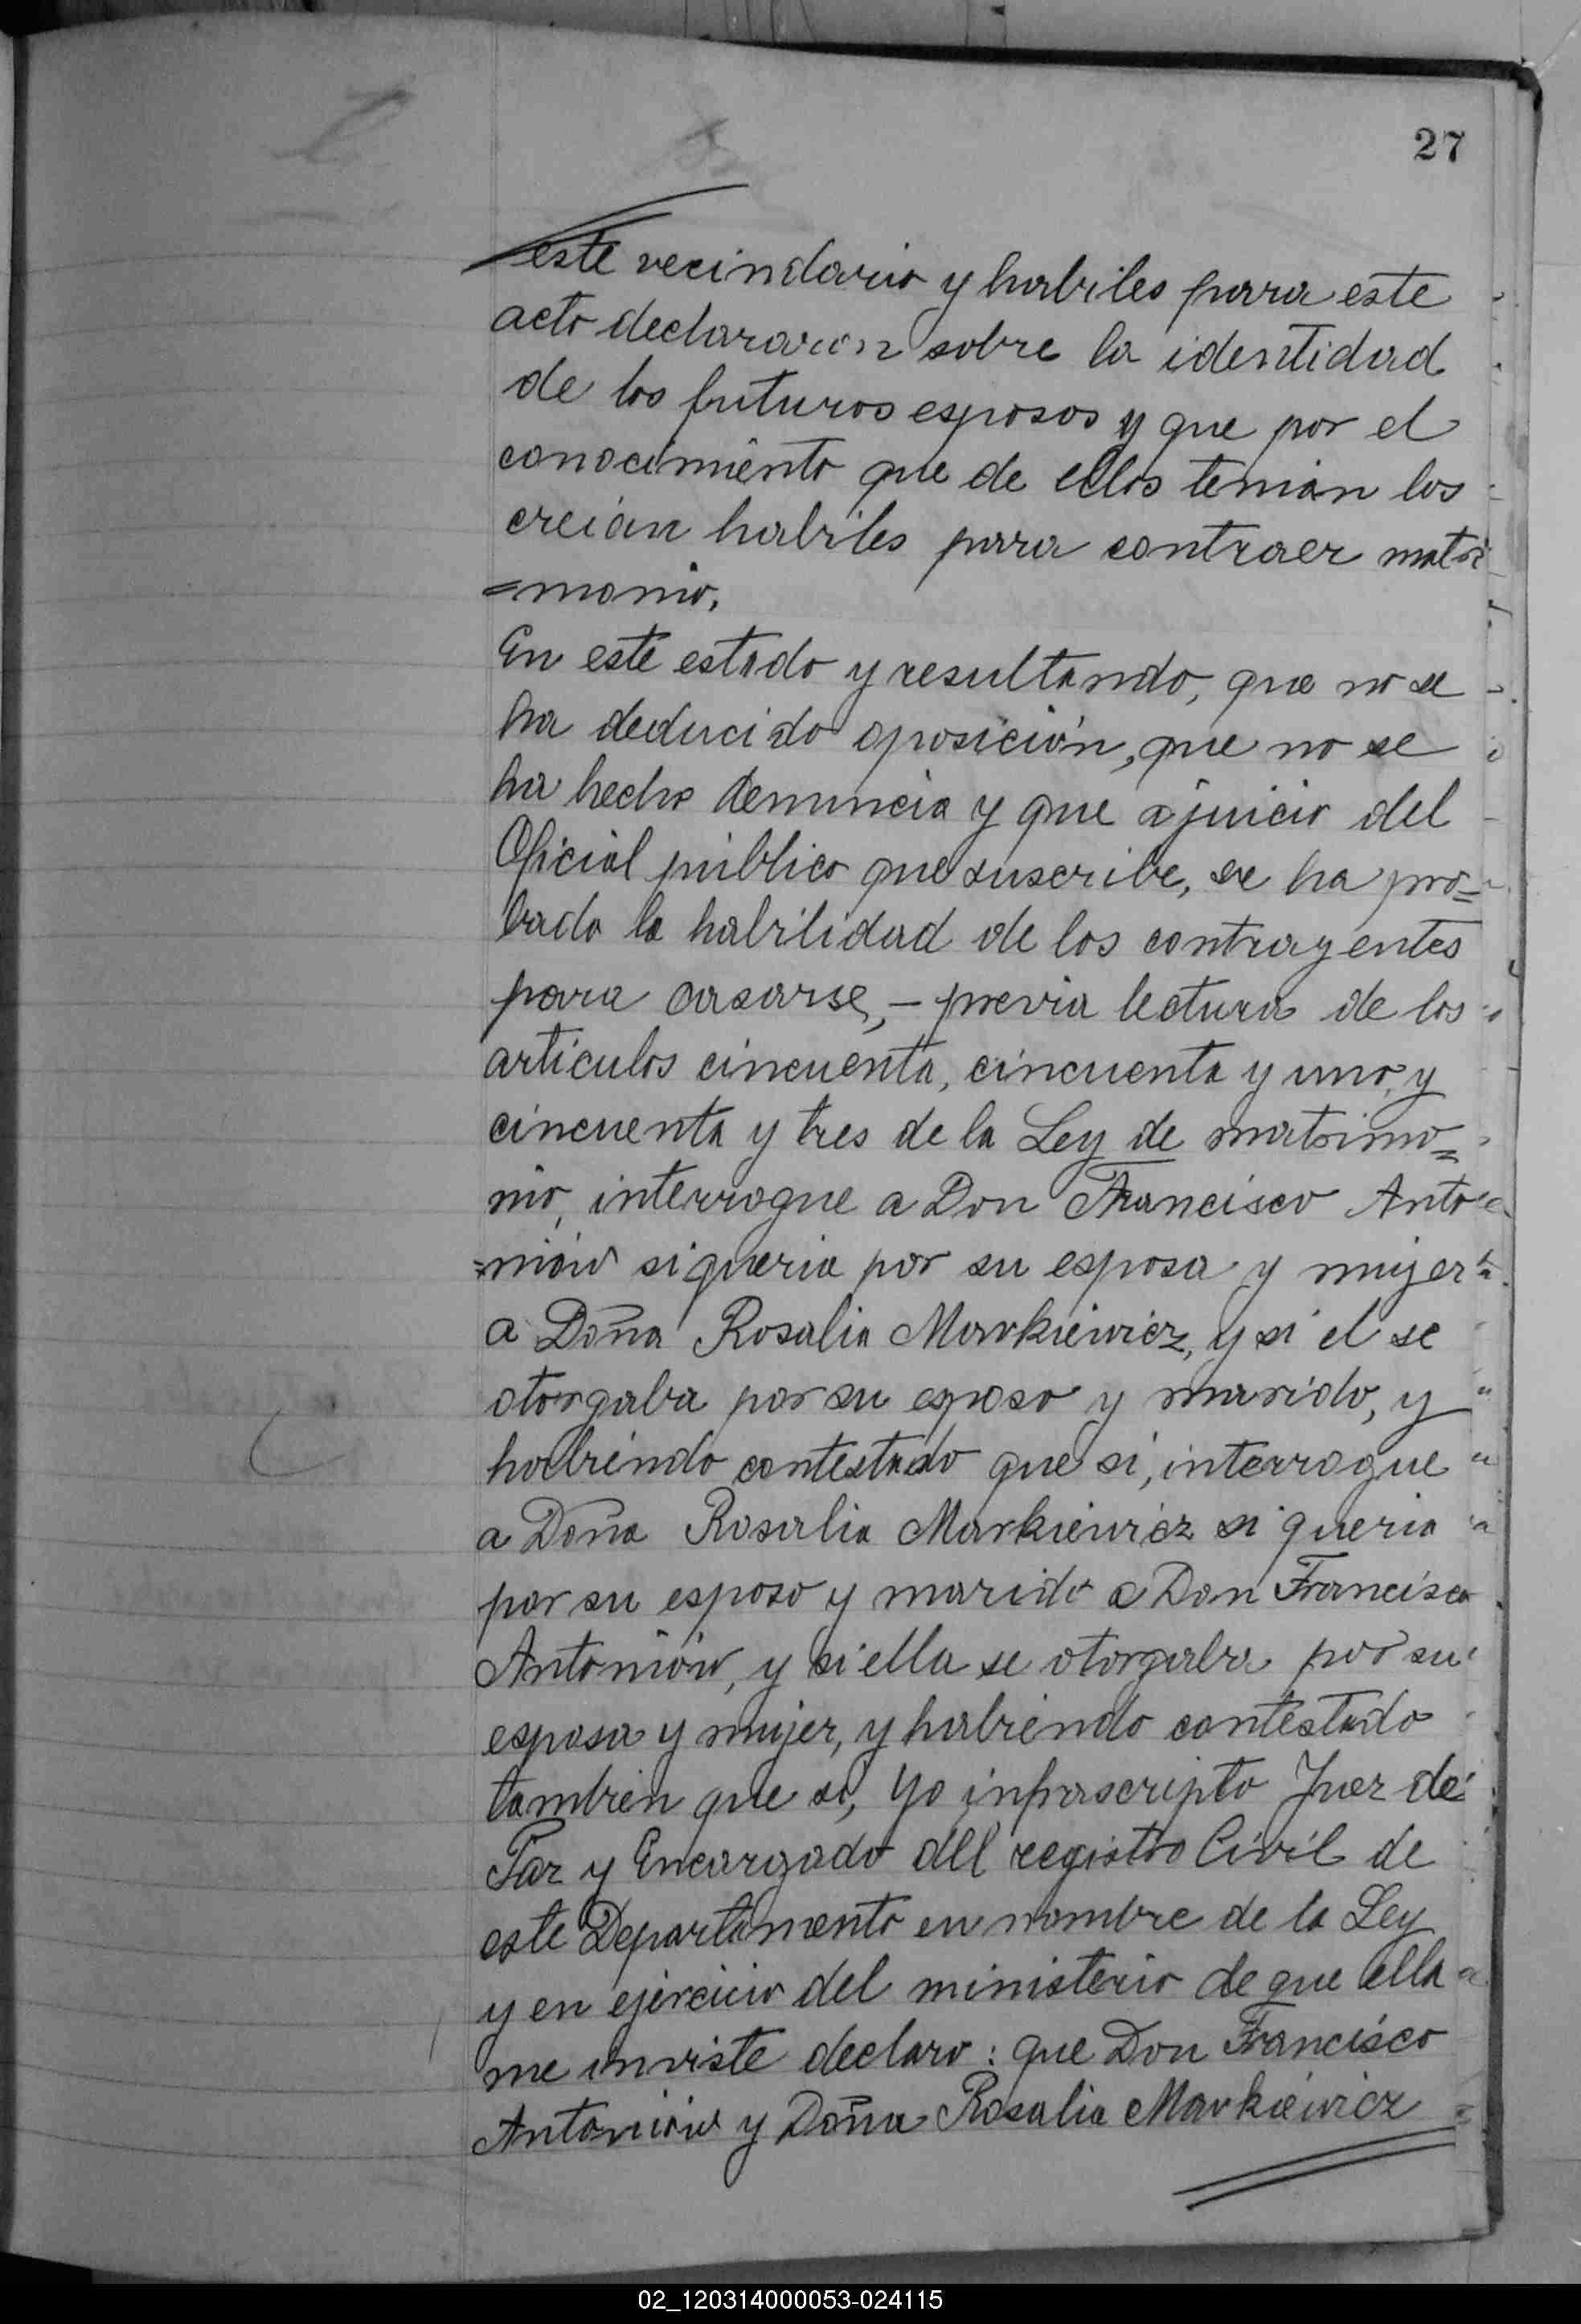 27
este vecindario y habiles para este
acto declararon sobre la identidad
de los futuros esposos y que por el
conocimiento que de ellos tenian los
creian habiles para contraer matri
=monio.
En este estado y resultando, que no se
ha deducido oposición, que no se
ha hecho denuncia y que a juicio del
Oficial público que suscribe, se ha pro=
bado la habilidad de los contrayentes
para casarse, — previa lectura de los
articulos cincuenta, cincuenta y uno, y
cincuenta y tres de la Ley de matrimo=
nio, interrogue a Don Francisco Anto
=niów si queria por su esposa y mujer
a Doña Rosalia Markiewicz, y si el se
otorgaba por su esposo y marido, y
habiendo contestado que si, interrogue
a Doña Rosalia Markiewicz si queria
por su esposo y marido a Don Francisco
Antoniów, y si ella se otorgaba por su
esposa y mujer, y habiendo contestado
tambien que si, Yo infrascripto Juez de
Paz y Encargado del registro Civil de
este Departamento en nombre de la Ley
y en ejercicio del ministerio de que ella
me inviste declaro: que Don Francisco
Antoniów y Doña Rosalia Markiewicz
02_120314000053-024115